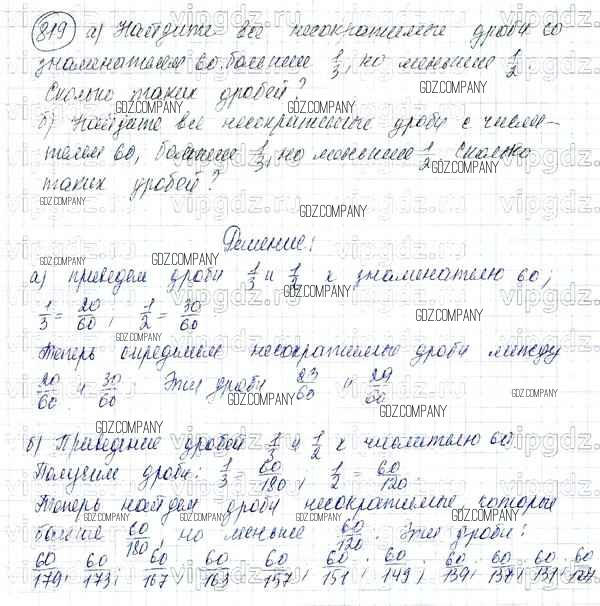 819 а) Найдите все несократимые дроби со
знаменателем 60, большие 1/3, но меньшие 1/2.
Сколько таких дробей?
б) Найдите все несократимые дроби с числи-
телем 60, большие 1/3, но меньшие 1/2. Сколько
таких дробей?
Решение:
а) приведем дроби 1/3 и 1/2 к знаменателю 60;
1/3 = 20/60; 1/2 = 30/60
Теперь определим несократимые дроби между
20/60 и 30/60; Эти дроби 23/60 и 29/60
б) Приведение дробей 1/3 и 1/2 к числителю 60
Получим дроби: 1/3 = 60/180; 1/2 = 60/120;
Теперь найдем дроби несократимые, которые
больше 60/180, но меньше 60/120. Эти дроби:
60/179; 60/173; 60/167 60/163 60/157; 60/151; 60/149; 60/139; 60/137; 60/131; 60/127
GDZ.COMPANY
vipgdz.ru